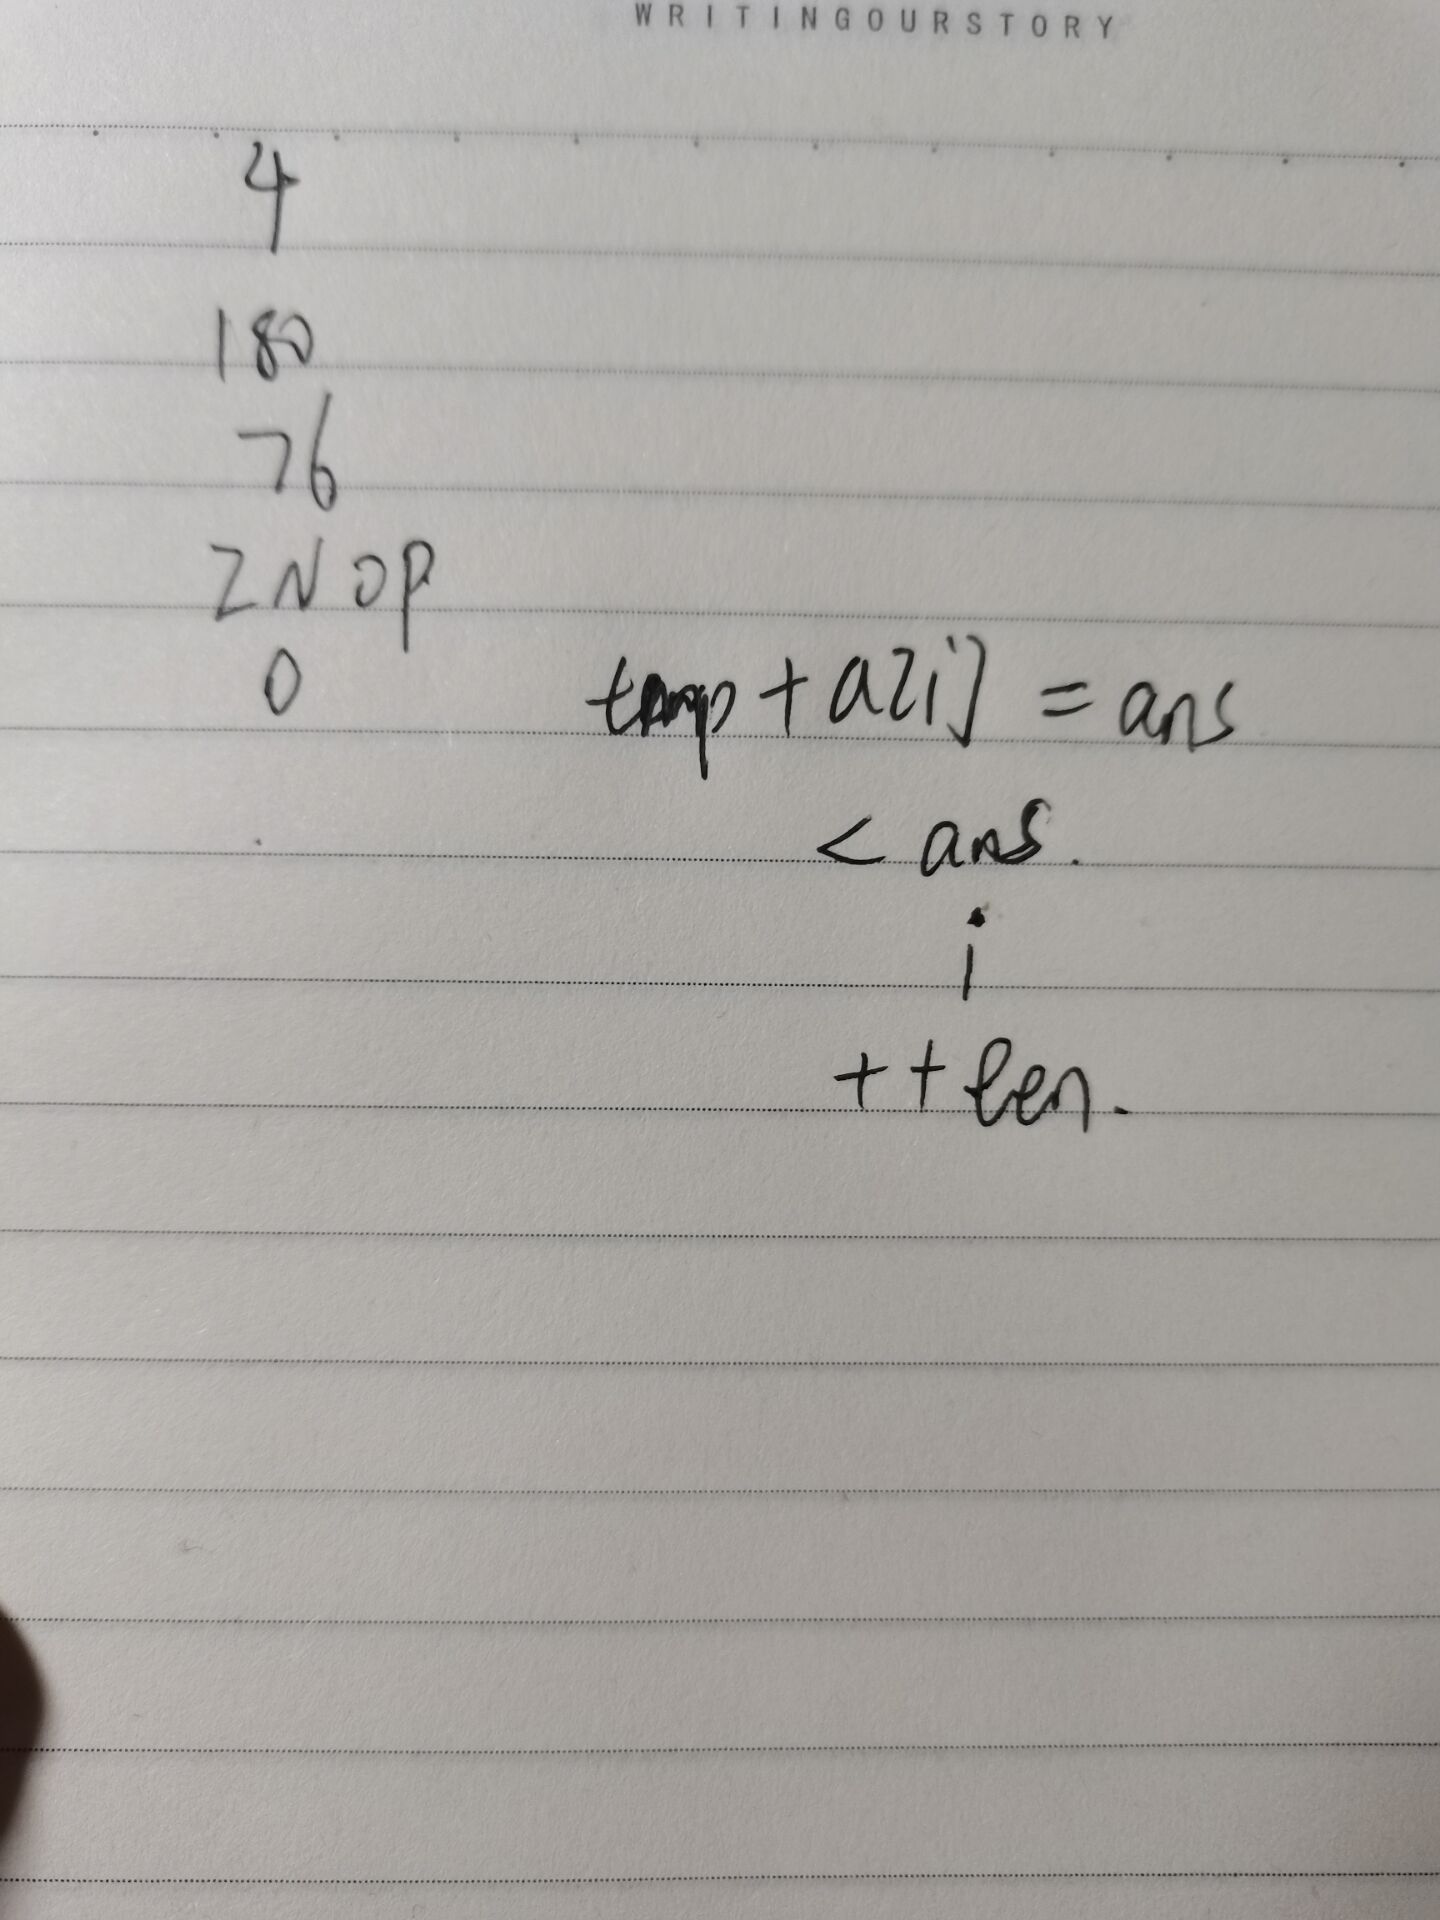 WRITINGOURSTORY
4
180
76
ZNOP
0
tmp + a[i] = ans
< ans.
i
++len.